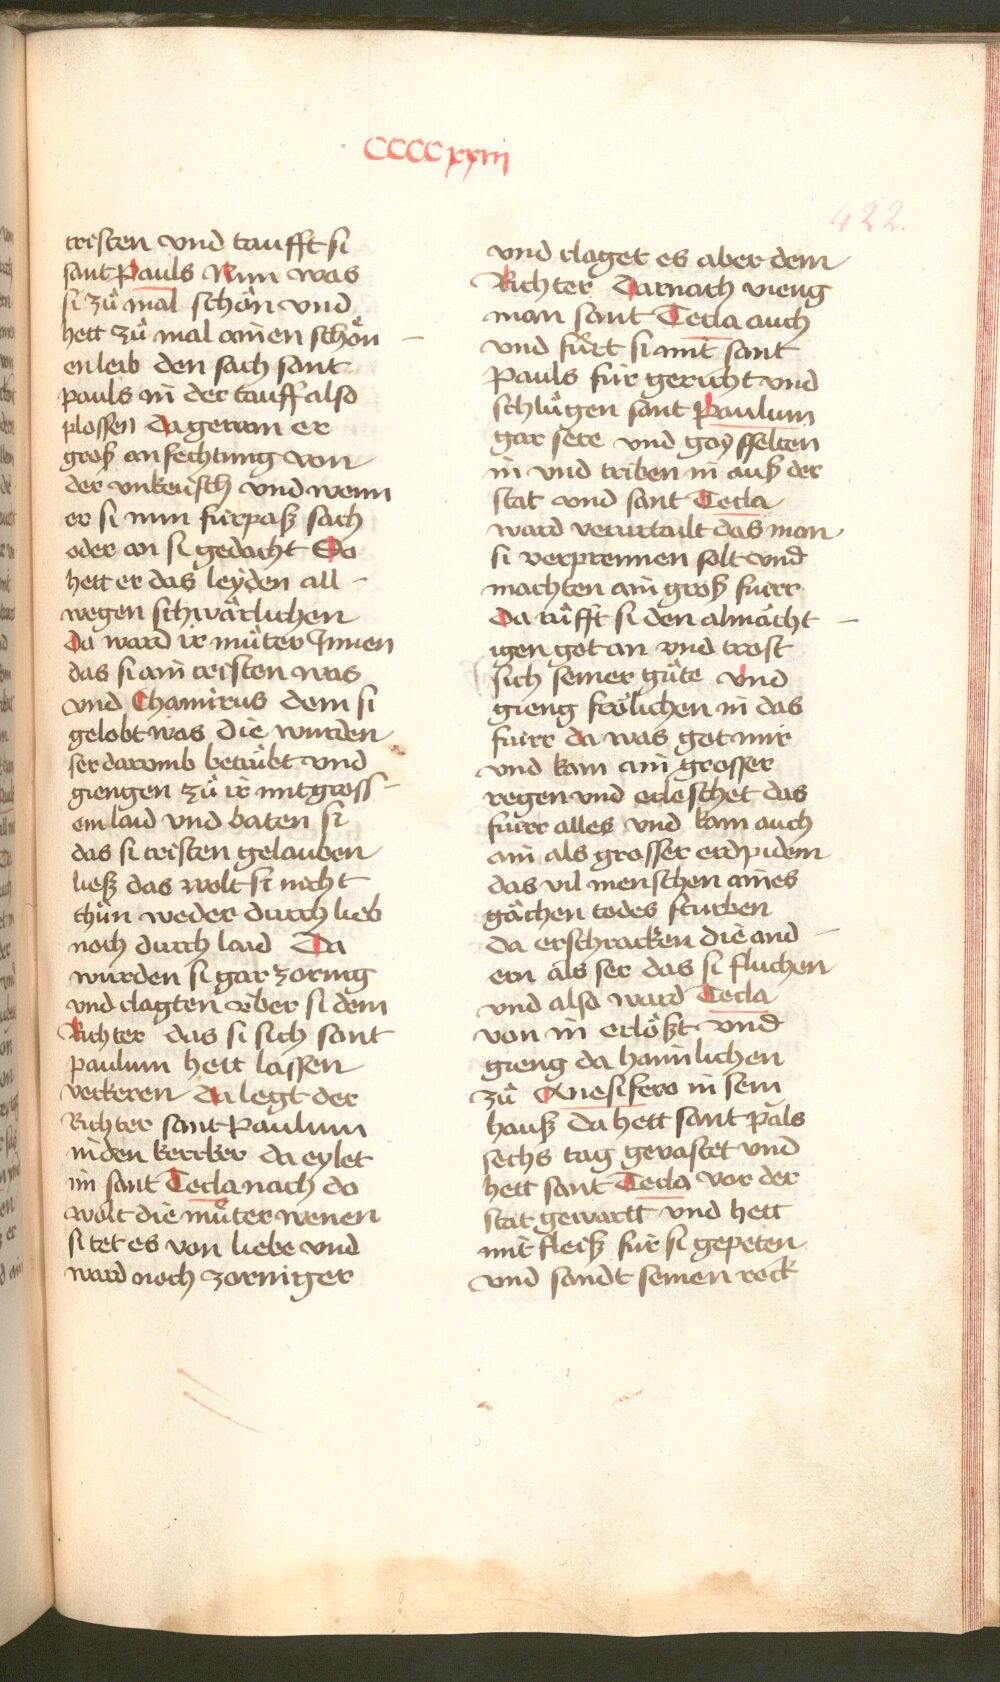 CCCCxxiii
422.
cristen vnd taufft si
sant Pauls Nun was
si zů mal schön vnd
hett zů mal ainen schön
en leib den sach sant
pauls in der tauff also
plossen Da gewan er
groß anfechtung von
der vnkeusch vnd wenn
er si nun fürpaß sach
oder an si gedacht So
hett er das leyden all
wegen schwärlichen
Da ward ir můter Innen
das si ain cristen was
vnd Chamirus dem si
gelobt was die wurden
ser darumb betrübt vnd
giengen zů ir mit gross
em laid vnd baten si
das si cristen gelauben
ließ das wolt si nicht
thůn weder durch lieb
noch durch laid Da
wurden si gar zornig
vnd clagten über si dem
Richter das si sich sant
paulum hett lassen
verkeren Da legt der
Richter sant Paulum
in den kercker da eylet
im sant Tecla nach do
wolt die můter wenen
si tet es von liebe vnd
ward noch zorniger
vnd claget es aber dem
Richter Darnach vieng
man sant Tecla auch
vnd fůrt si mit sant
Pauls für gericht vnd
schlůgen sant Paulum
gar sere vnd gaysselten
in vnd triben in auß der
stat vnd sant Tecla
ward verurtailt das man
si verprennen solt vnd
machten ain groß fuirr
Da růfft si den almächt
igen got an vnd trost
sich seiner güte vnd
gieng frölichen in das
fuirr da was got mir
vnd kam ain grosser
regen vnd erleschet das
fuirr alles vnd kam auch
ain als grosser erdpidem
das vil menschen aines
gächen todes sturben
da erschracken die and
ern als ser das si fluchen
vnd also ward Tecla
von in erlößt vnd
gieng da haimlichen
zů Onesifero in sein
hauß da hett sant Pals
sechs tag gevastet vnd
hett sant Tecla vor der
stat gewartt vnd hett
mit fleiß für si gepeten
vnd sandt seinen rock